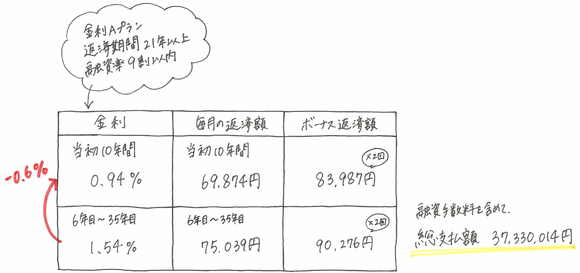 金利Aプラン
返済期間 21年以上
融資率 9割以内
金利
毎月の返済額
ボーナス返済額
当初10年間
0.94%
当初10年間
69,874円
×2回
83,987円
-0.6%
6年目〜35年目
1.54%
6年目〜35年目
75.039円
×2回
90,276円
融資手数料を含めて、
総支払額 37,330,014円